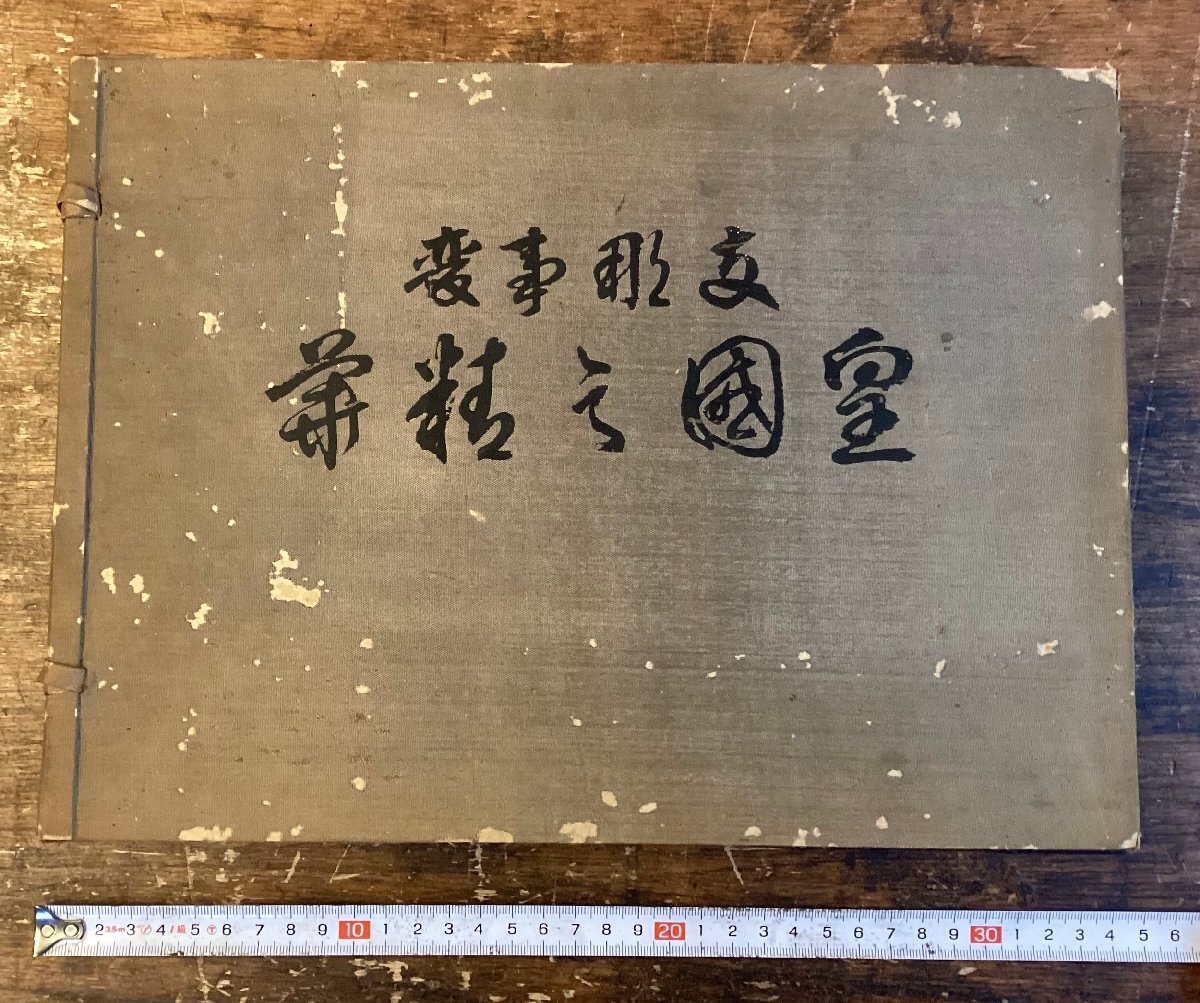 支那事変
皇國之精華
2 3.5m 3 4 1級 5 6 7 8 9 10 1 2 3 4 5 6 7 8 9 20 1 2 3 4 5 6 7 8 9 30 1 2 3 4 5 6